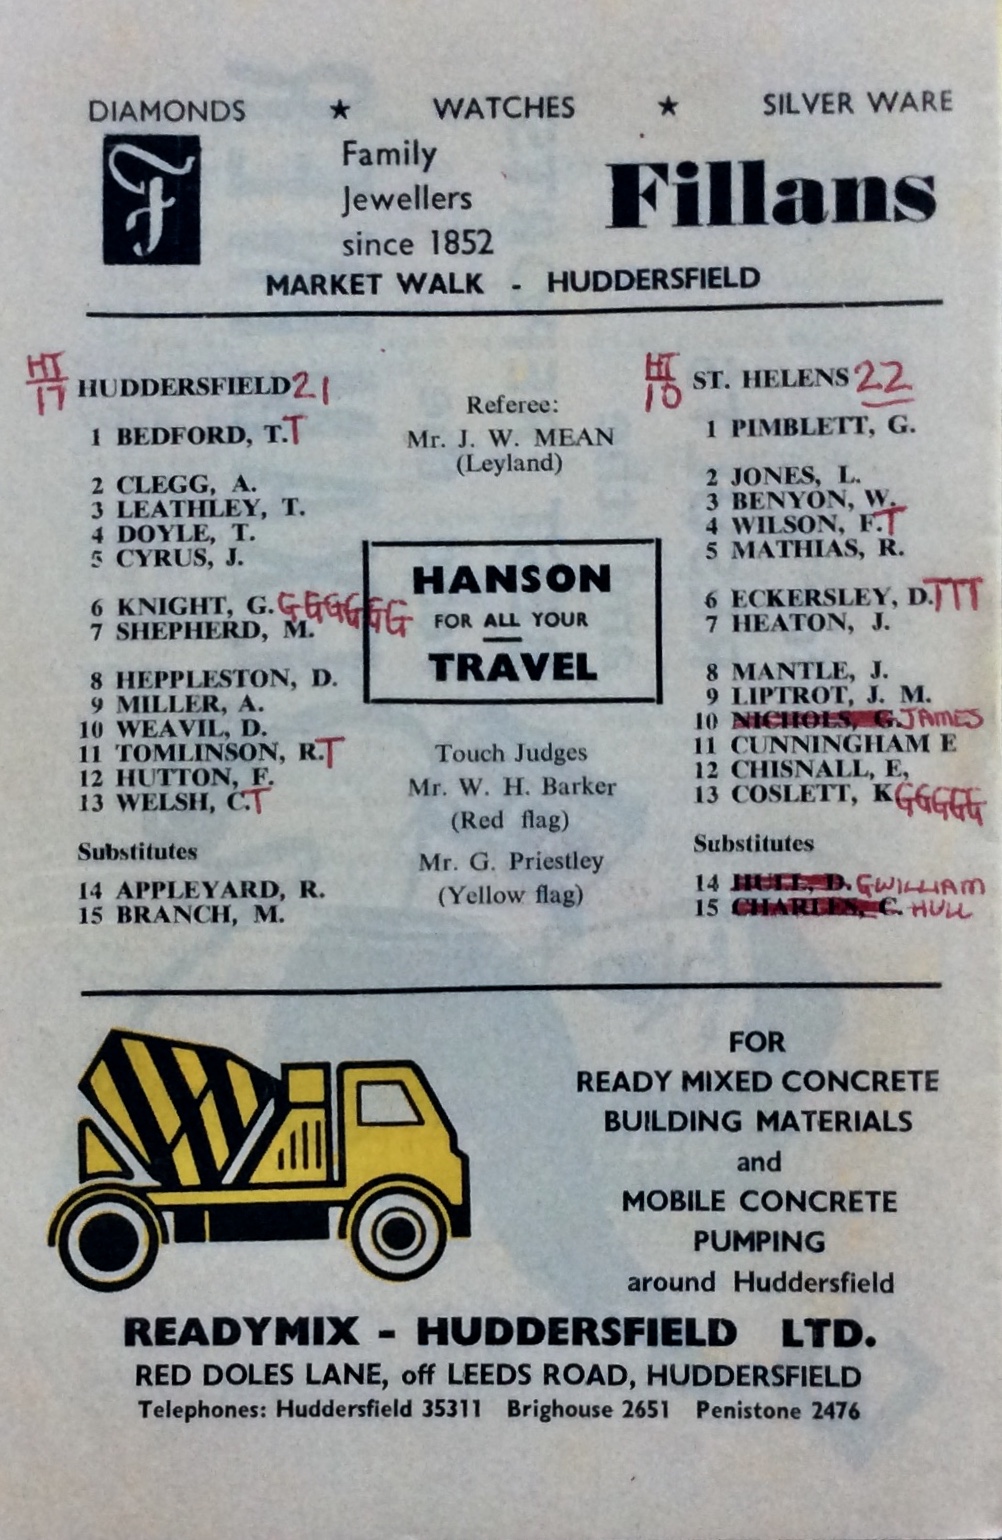 DIAMONDS ★ WATCHES ★ SILVER WARE
F
Family
Jewellers
since 1852
Fillans
MARKET WALK - HUDDERSFIELD
HT
17
HUDDERSFIELD 21
1 BEDFORD, T. T
2 CLEGG, A.
3 LEATHLEY, T.
4 DOYLE, T.
5 CYRUS, J.
6 KNIGHT, G. GGGGGG
7 SHEPHERD, M.
8 HEPPLESTON, D.
9 MILLER, A.
10 WEAVIL, D.
11 TOMLINSON, R. T
12 HUTTON, F.
13 WELSH, C. T
Substitutes
14 APPLEYARD, R.
15 BRANCH, M.
Referee:
Mr. J. W. MEAN
(Leyland)
HANSON
FOR ALL YOUR
TRAVEL
Touch Judges
Mr. W. H. Barker
(Red flag)
Mr. G. Priestley
(Yellow flag)
HT
10
ST. HELENS 22
1 PIMBLETT, G.
2 JONES, L.
3 BENYON, W.
4 WILSON, F. T
5 MATHIAS, R.
6 ECKERSLEY, D. TTT
7 HEATON, J.
8 MANTLE, J.
9 LIPTROT, J. M.
10 NICHOLS, G. JAMES
11 CUNNINGHAM E
12 CHISNALL, E,
13 COSLETT, K GGGGG
Substitutes
14 HULL, D. GWILLIAM
15 CHARLES, C. HULL
FOR
READY MIXED CONCRETE
BUILDING MATERIALS
and
MOBILE CONCRETE
PUMPING
around Huddersfield
READYMIX - HUDDERSFIELD LTD.
RED DOLES LANE, off LEEDS ROAD, HUDDERSFIELD
Telephones: Huddersfield 35311 Brighouse 2651 Penistone 2476